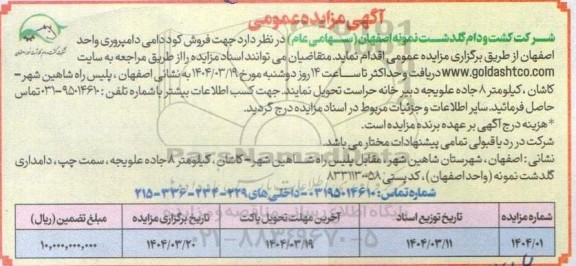 آگهی مزایده عمومی
شرکت کشت و دام گلدشت نمونه اصفهان (سهامی عام) در نظر دارد جهت فروش کود دامی دامپروری واحد
اصفهان از طریق برگزاری مزایده عمومی اقدام نماید. متقاضیان می توانند اسناد مزایده را از طریق مراجعه به سایت
www.goldashtco.com دریافت و حداکثر تا ساعت ۱۴ روز دوشنبه مورخ ۱۴۰۴/۰۳/۱۹ به نشانی اصفهان ، پلیس راه شاهین شهر-
کاشان ، کیلومتر ۸ جاده علویجه دبیرخانه حراست تحویل نمایند. جهت کسب اطلاعات بیشتر با شماره تلفن : ۹۵۰۱۴۶۱۰-۰۳۱ تماس
حاصل فرمائید. سایر اطلاعات و جزئیات مربوط در اسناد مزایده درج گردید.
*هزینه درج آگهی بر عهده برنده مزایده است.
شرکت در رد یا قبولی تمامی پیشنهادات مختار می باشد.
نشانی: اصفهان ، شهرستان شاهین شهر، مقابل پلیس راه شاهین شهر-کاشان ، کیلومتر ۸ جاده علویجه ، سمت چپ، دامداری
گلدشت نمونه (واحد اصفهان) ، کدپستی ۸۳۳۱۱۳۰۵۸
شماره تماس: ۰۳۱۹۵۰۱۴۶۱۰-داخلی های ۲۲۹-۲۳۴-۳۳۶-۲۱۵
شماره مزایده تاریخ توزیع اسناد آخرین مهلت تحویل پاکت تاریخ برگزاری مزایده مبلغ تضمین (ریال)
۱۴۰۴/۰۱ ۱۴۰۴/۰۳/۱۱ ۱۴۰۴/۰۳/۱۹ ۱۴۰۴/۰۳/۲۰ ۱۰,۰۰۰,۰۰۰,۰۰۰
ParsNamadData
۰۲۱-۸۸۳۴۹۶۷۰-۵